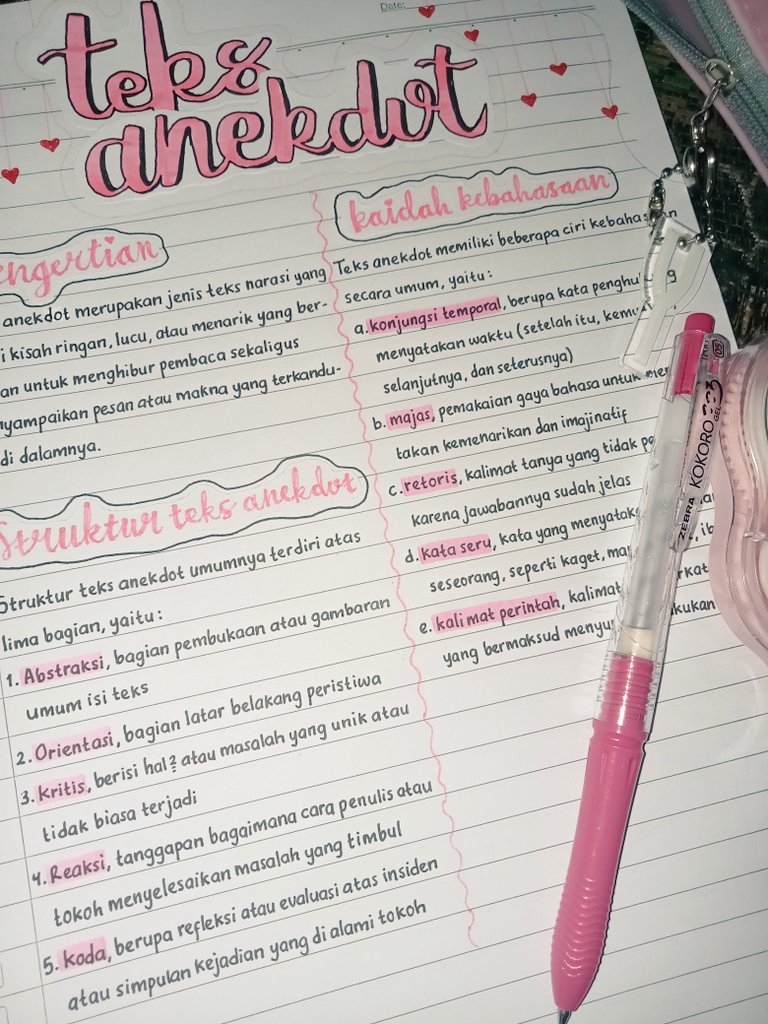 Date:
teks
anekdot
engertian
anekdot merupakan jenis teks narasi yang
i kisah ringan, lucu, atau menarik yang ber-
an untuk menghibur pembaca sekaligus
nyampaikan pesan atau makna yang terkandu-
di dalamnya.
Struktur teks anekdot
Struktur teks anekdot umumnya terdiri atas
lima bagian, yaitu:
1. Abstraksi, bagian pembukaan atau gambaran
umum isi teks
2. Orientasi, bagian latar belakang peristiwa
3. kritis, berisi hal2 atau masalah yang unik atau
tidak biasa terjadi
4. Reaksi, tanggapan bagaimana cara penulis atau
tokoh menyelesaikan masalah yang timbul
5. koda, berupa refleksi atau evaluasi atas insiden
atau simpulan kejadian yang di alami tokoh
kaidah kebahasaan
Teks anekdot memiliki beberapa ciri
secara umum, yaitu:
a. konjungsi temporal, berupa kata
menyatakan waktu (setelah itu,
selanjutnya, dan seterusnya)
b. majas, pemakaian gaya bahasa untuk
takan kemenarikan dan imajinatif
c. retoris, kalimat tanya yang tidak
karena jawabannya sudah jelas
d. kata seru, kata yang
seseorang, seperti kaget,
e. kalimat perintah, kalimat
yang bermaksud
ZEBRA KOKORO GEL
05